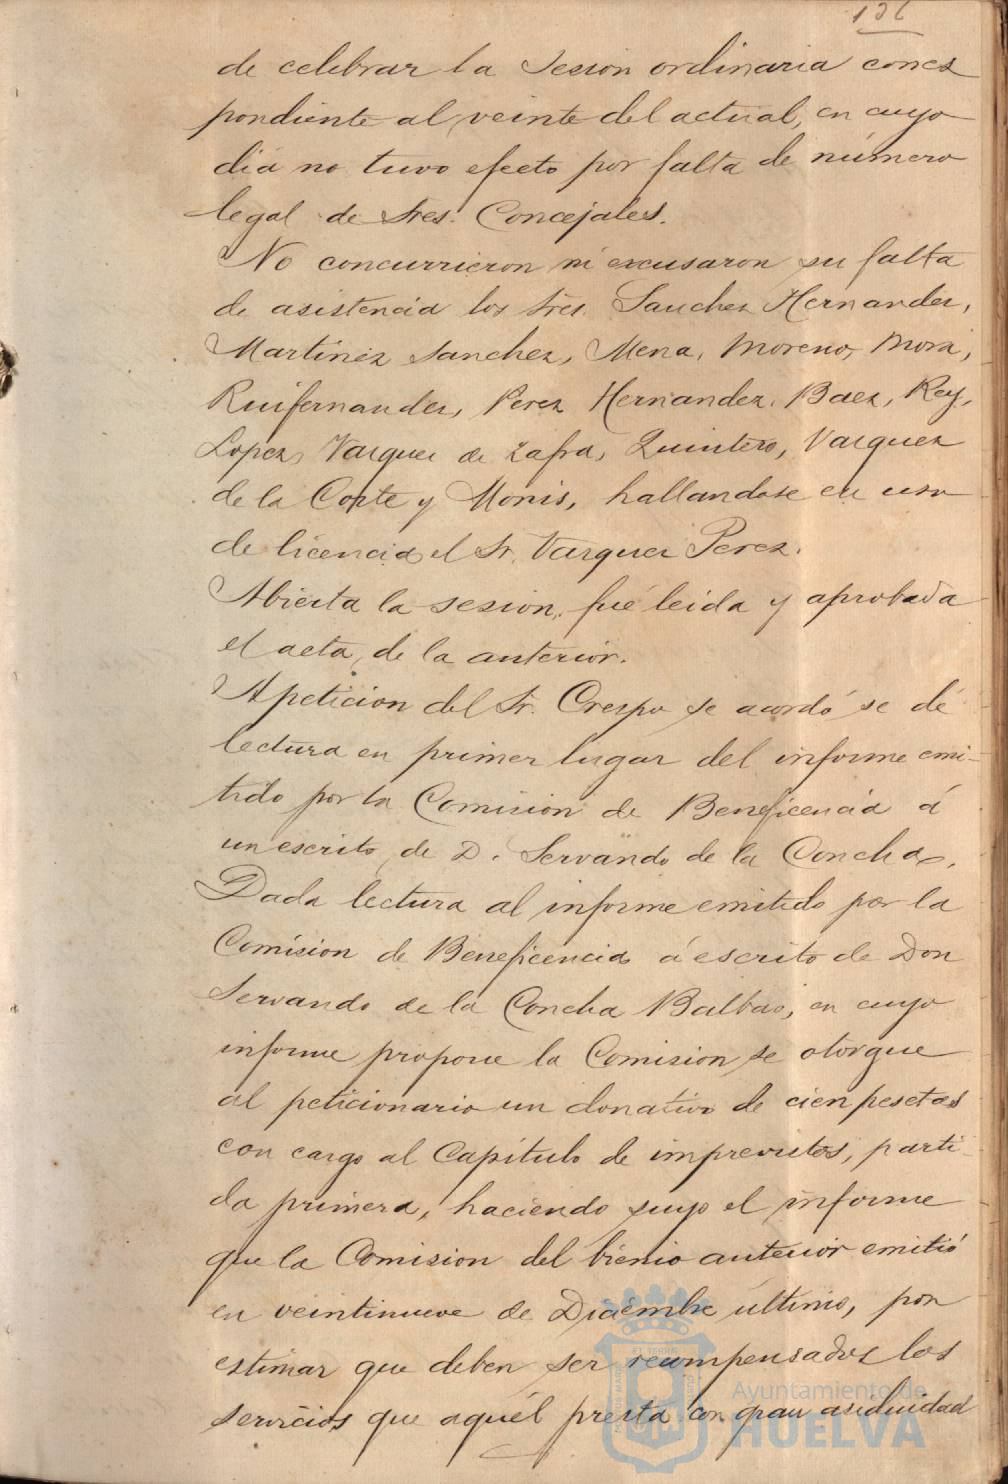 136
de celebrar la Sesion ordinaria corres
pondiente al veinte del actual, en cuyo
dia no tuvo efecto por falta de número
legal de Sres. Concejales.
No concurrieron ni excusaron su falta
de asistencia los Sres. Sanchez Hernandez,
Martinez Sanchez, Mena, Moreno, Mora,
Ruifernandez, Perez Hernandez, Baez, Rey,
Lopez, Vazquez de Zafra, Quintero, Vazquez
de la Corte y Monis, hallandose en uso
de licencia el Sr. Vazquez Perez.
Abierta la sesion, fué leida y aprobada
el acta de la anterior.
A peticion del Sr. Crespo se acordó se dé
lectura en primer lugar del informe emi-
tido por la Comision de Beneficencia á
un escrito de D. Servando de la Concha.
Dada lectura al informe emitido por la
Comision de Beneficencia á escrito de Don
Servando de la Concha Balbao, en cuyo
informe propone la Comision se otorgue
al peticionario un donativo de cien pesetas
con cargo al Capítulo de imprevistos, parti-
da primera, haciendo suyo el informe
que la Comision del bienio anterior emitió
en veintinueve de Diciembre último, por
estimar que deben ser recompensados los
servicios que aquél presta con gran asiduidad
Ayuntamiento de
HUELVA